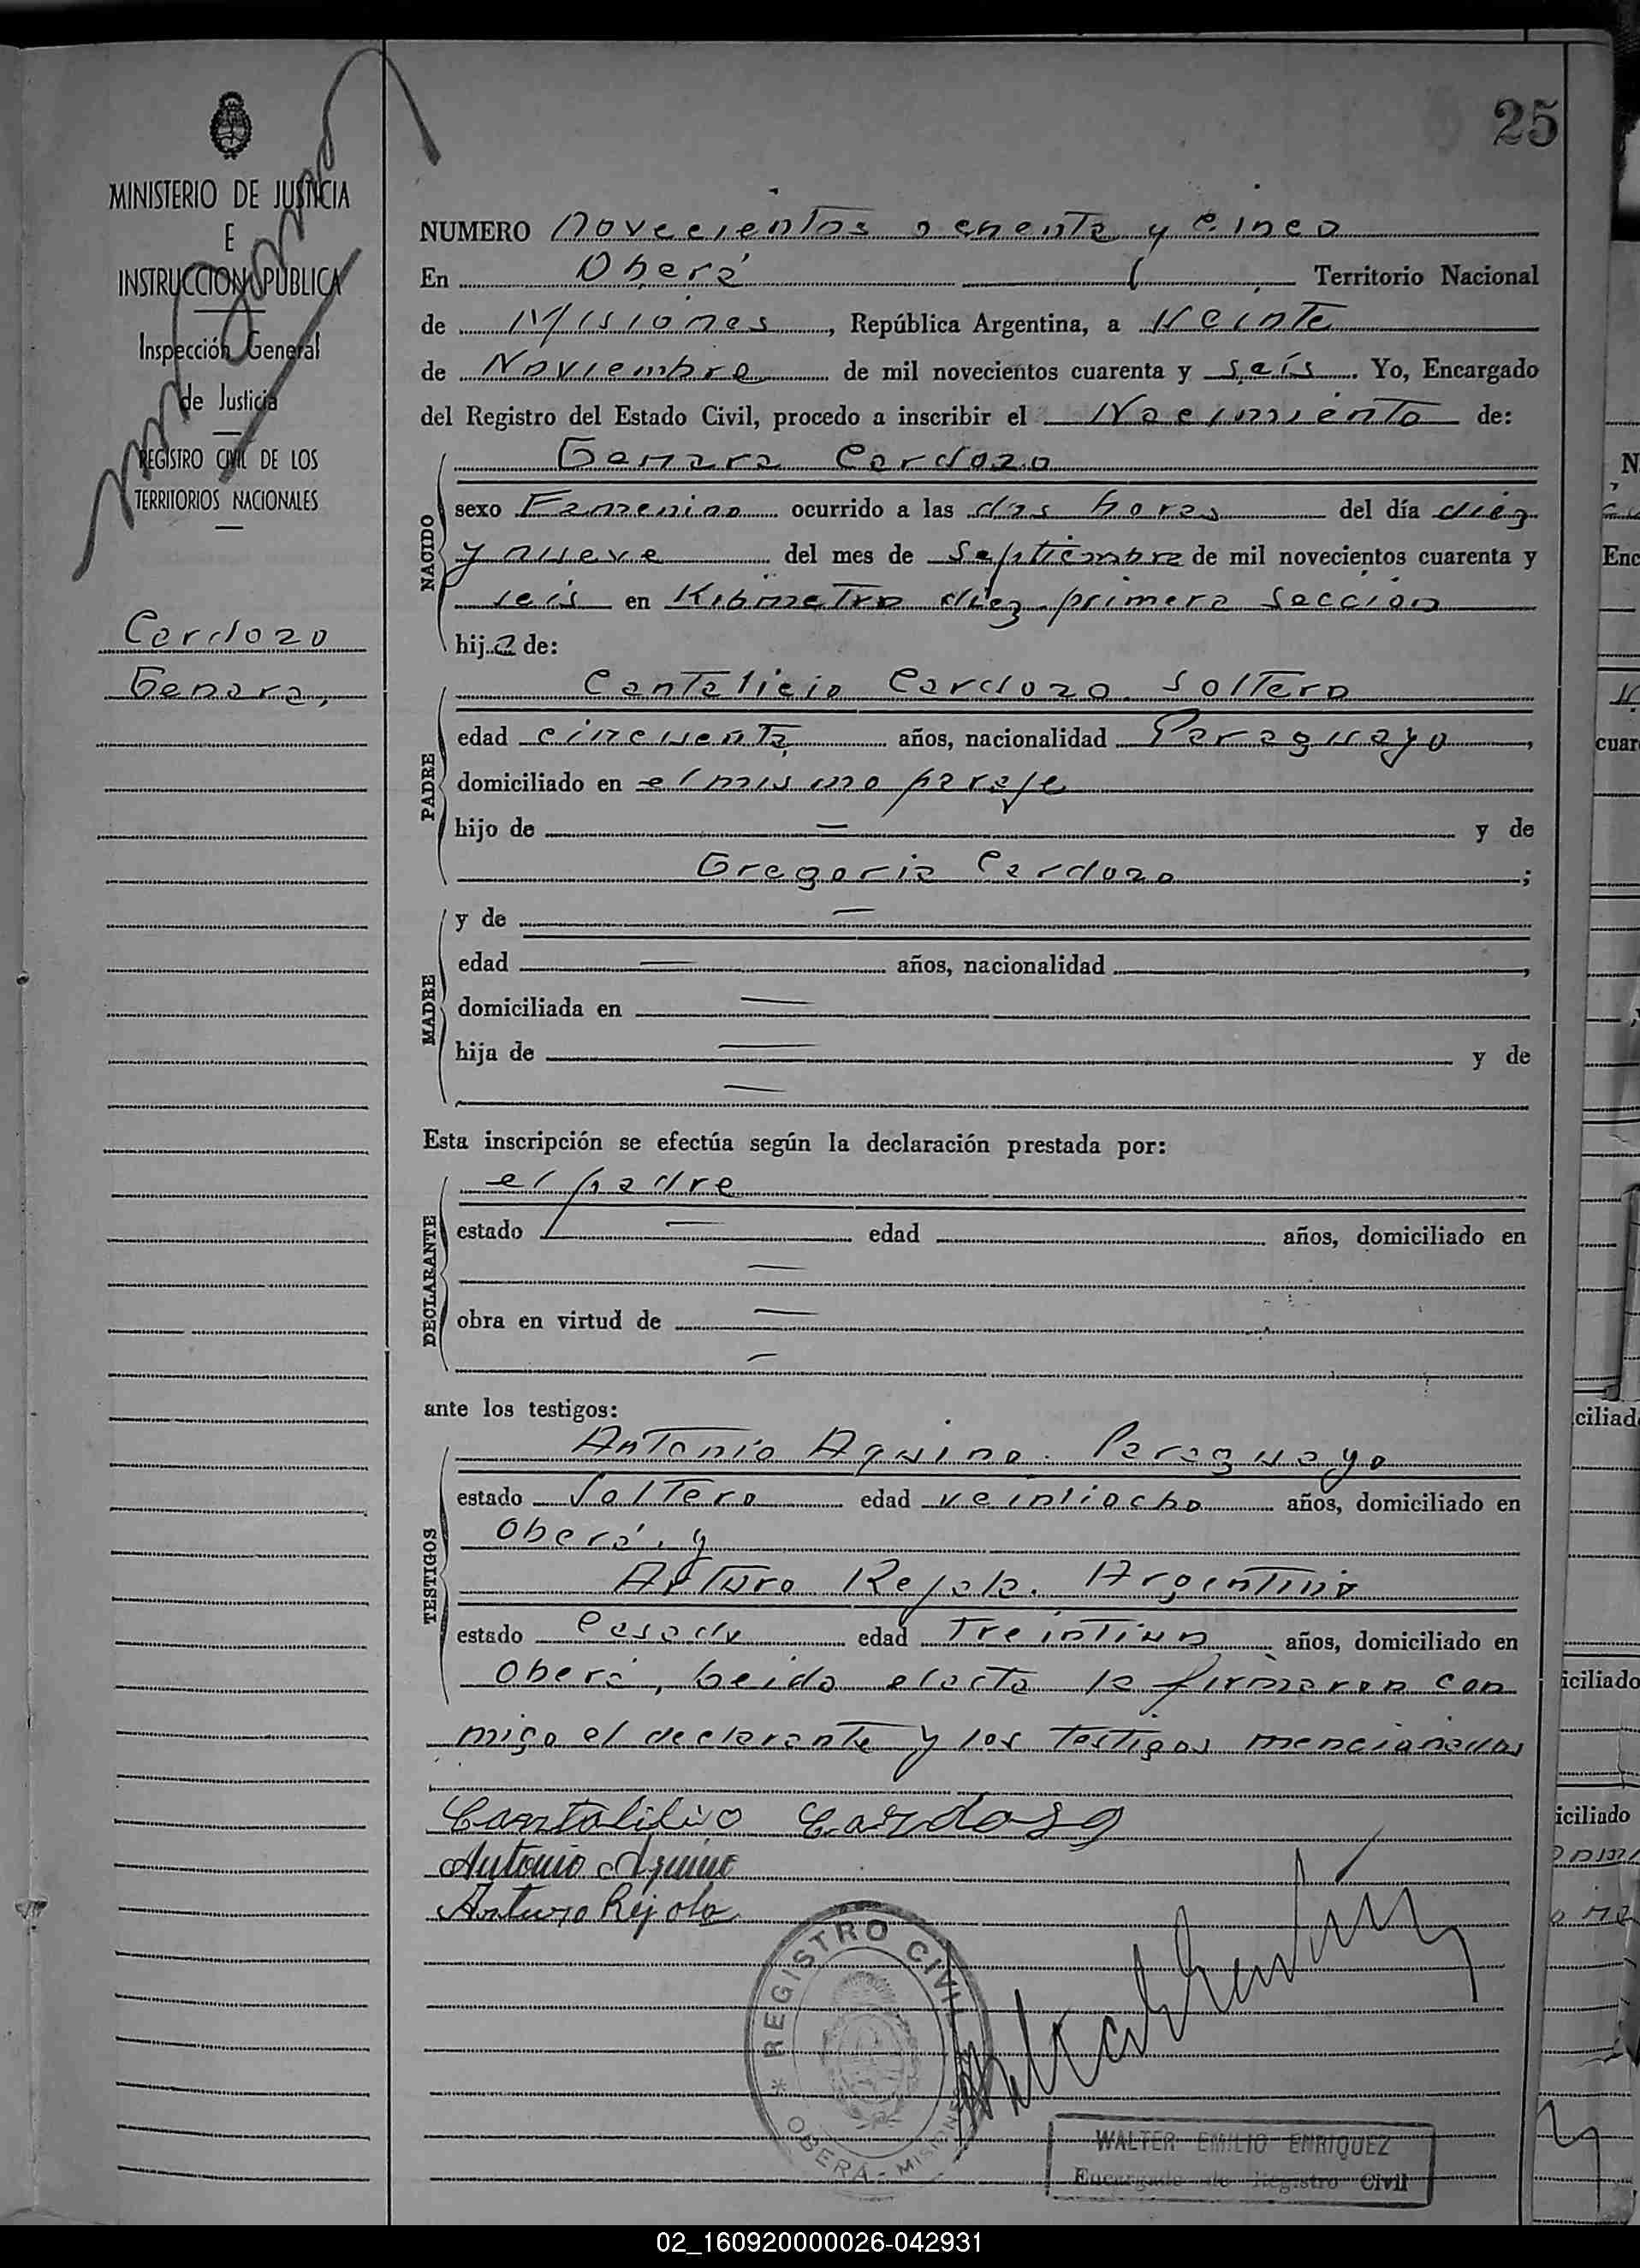 25
MINISTERIO DE JUSTICIA
E
INSTRUCCION PUBLICA
Inspección General
de Justicia
REGISTRO CIVIL DE LOS
TERRITORIOS NACIONALES
Cardozo
Genara,
NUMERO novecientos ochenta y cinco
En Oberá Territorio Nacional
de Misiones, República Argentina, a Veinte
de Noviembre de mil novecientos cuarenta y seis. Yo, Encargado
del Registro del Estado Civil, procedo a inscribir el Nacimiento de:
NACIDO
Genara Cardozo
sexo Femenino ocurrido a las dos horas del día diez
y nueve del mes de Septiembre de mil novecientos cuarenta y
seis en Kilómetro diez primera Sección
hija de:
PADRE
Cantalicio Cardozo. Soltero
edad cincuenta años, nacionalidad Paraguayo,
domiciliado en el mismo paraje
hijo de — y de
Gregoria Cardozo;
MADRE
y de —
edad — años, nacionalidad ,
domiciliada en —
hija de — y de
—
Esta inscripción se efectúa según la declaración prestada por:
DECLARANTE
el padre
estado — edad años, domiciliado en
—
obra en virtud de —
—
ante los testigos:
TESTIGOS
Antonio Aquino. Paraguayo
estado Soltero edad veintiocho años, domiciliado en
Oberá, y
Arturo Rejala. Argentino
estado Casado edad Treintiun años, domiciliado en
Oberá, Leida el acta la firmaron con
migo el declarante y los Testigos mencionados
Cantalicio Cardoso
Antonio Aquino
Arturo Rejala
REGISTRO CIVIL
* OBERÁ - MISIONES
WALTER EMILIO ENRIQUEZ
Encargado de Registro Civil
02_160920000026-042931